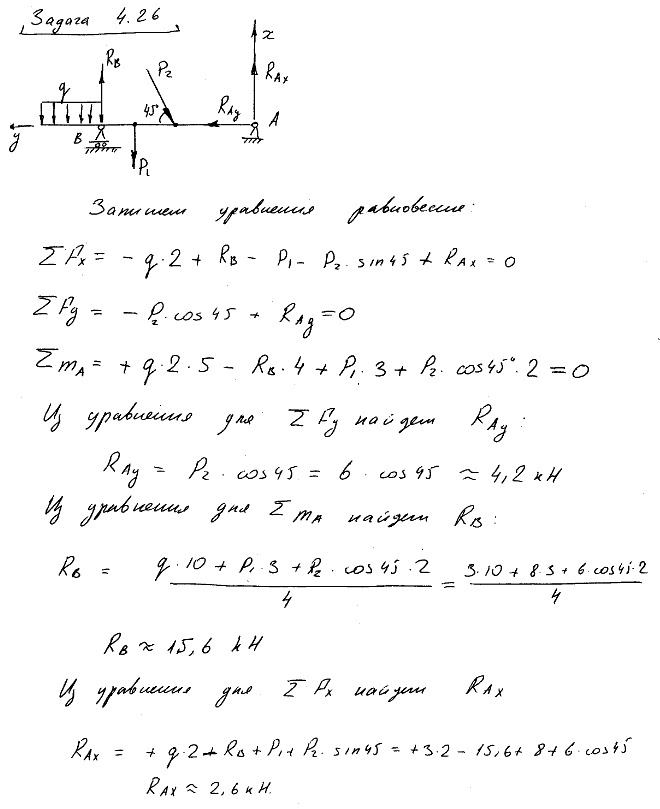 Задача 4.26
x
R_B
P₂
R_Ax
q
45°
R_Ay
A
y
B
P₁
Запишем уравнения равновесие:
ΣF_x = - q·2 + R_B - P₁ - P₂·sin45 + R_Ax = 0
ΣF_y = - P₂·cos45 + R_Ay = 0
Σm_A = + q·2·5 - R_B·4 + P₁·3 + P₂·cos45°·2 = 0
Из уравнения для ΣF_y найдем R_Ay:
R_Ay = P₂·cos45 = 6·cos45 ≈ 4,2 кН
Из уравнения для Σm_A найдем R_B:
R_B = (q·10 + P₁·3 + P₂·cos45·2)/4 = (3·10 + 8·3 + 6·cos45·2)/4
R_B ≈ 15,6 кН
Из уравнения для ΣP_x найдем R_Ax
R_Ax = + q·2 - R_B + P₁ + P₂·sin45 = +3·2 - 15,6 + 8 + 6·cos45
R_Ax ≈ 2,6 кН.